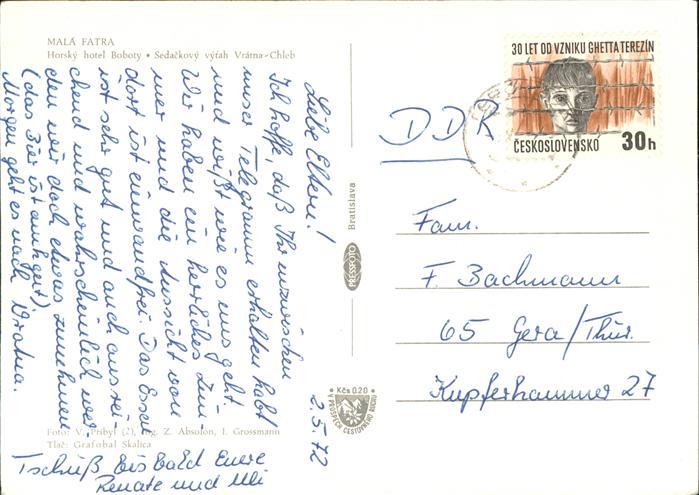 MALÁ FATRA
Horský hotel Boboty • Sedačkový výťah Vrátna-Chleb
Liebe Eltern!
Ich hoffe, daß Ihr inzwischen
unser Telegramm erhalten habt
und wißt wie es uns geht.
Wir haben ein herrliches Zim-
mer und die Aussicht von
dort ist einwandfrei. Das Essen
ist sehr gut und auch ausrei-
chend und wahrscheinlich wer-
den wir doch etwas zunehmen
(das Bier ist ).
Morgen geht es nach Vratna.
Tschüß bis bald Eure
Renate und Uli
2.5.72
Foto: V. Přibyl (2), Ing. Z. Absolon, I. Grossmann
Tlač: Grafobal Skalica
Bratislava
PRESSFOTO
Kčs 0,20
V PROSPECH CESTOVNÉHO RUCHU
30 LET OD VZNIKU GHETTA TEREZÍN
ČESKOSLOVENSKO 30h
DDR
Fam.
F. Bachmann
65 Gera/Thür.
Kupferhammer 27